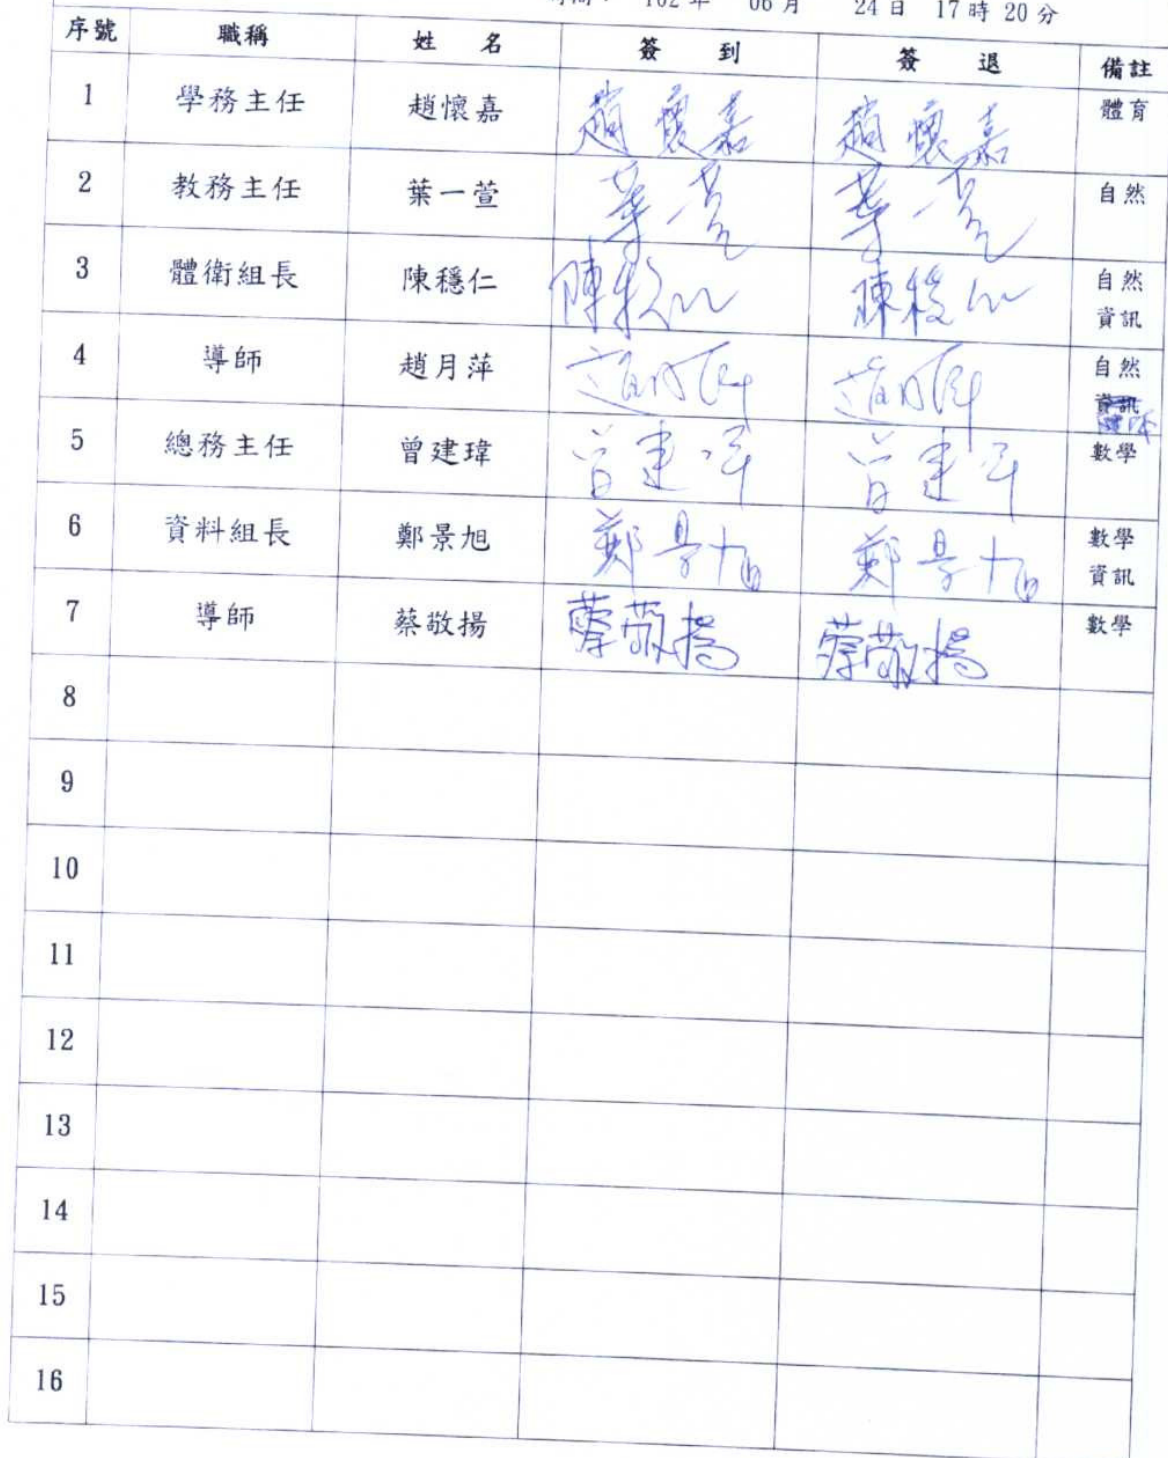 102 年 06 月 24 日 17 時 20 分
序號 職稱 姓 名 簽 到 簽 退 備註
1 學務主任 趙懷嘉 趙懷嘉 趙懷嘉 體育
2 教務主任 葉一萱 葉一萱 葉一萱 自然
3 體衛組長 陳穩仁 陳穩仁 陳穩仁 自然
資訊
4 導師 趙月萍 趙月萍 趙月萍 自然
資訊
5 總務主任 曾建瑋 曾建瑋 曾建瑋 數學
6 資料組長 鄭景旭 鄭景旭 鄭景旭 數學
資訊
7 導師 蔡敬揚 蔡敬揚 蔡敬揚 數學
8
9
10
11
12
13
14
15
16